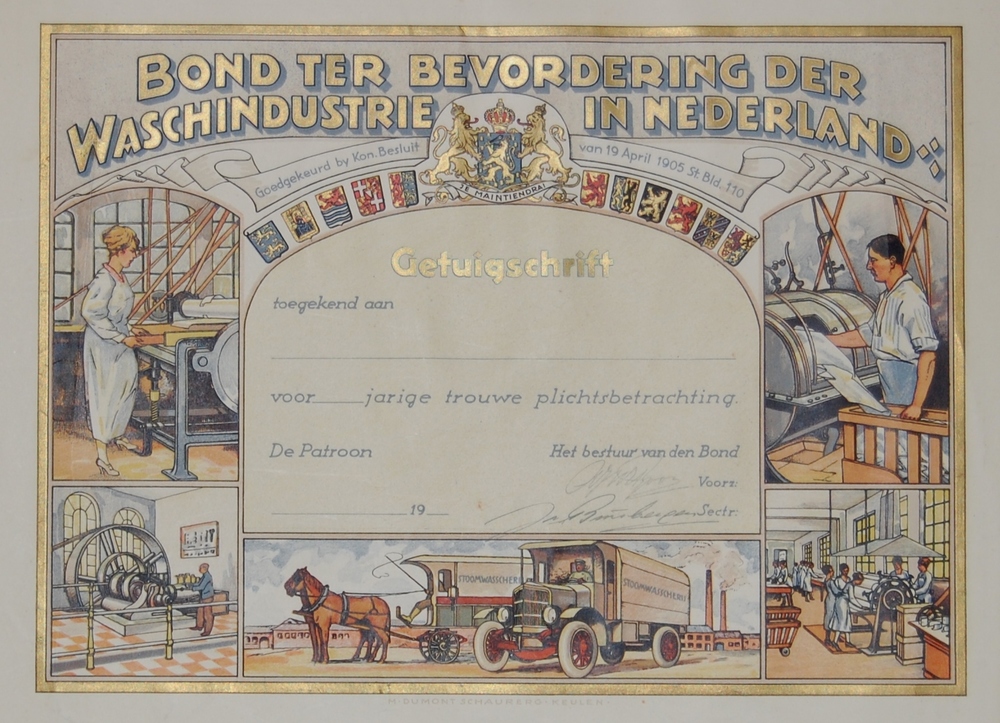 BOND TER BEVORDERING DER
WASCHINDUSTRIE IN NEDERLAND
Goedgekeurd by Kon. Besluit van 19 April 1905 St Bld. 110
JE MAINTIENDRAI
Getuigschrift
toegekend aan
voor jarige trouwe plichtsbetrachting.
De Patroon Het bestuur van den Bond
Voorz:
19 Sectr:
STOOMWASSCHERIJ STOOMWASSCHERIJ
H. DUMONT SCHAUBERG - KEULEN